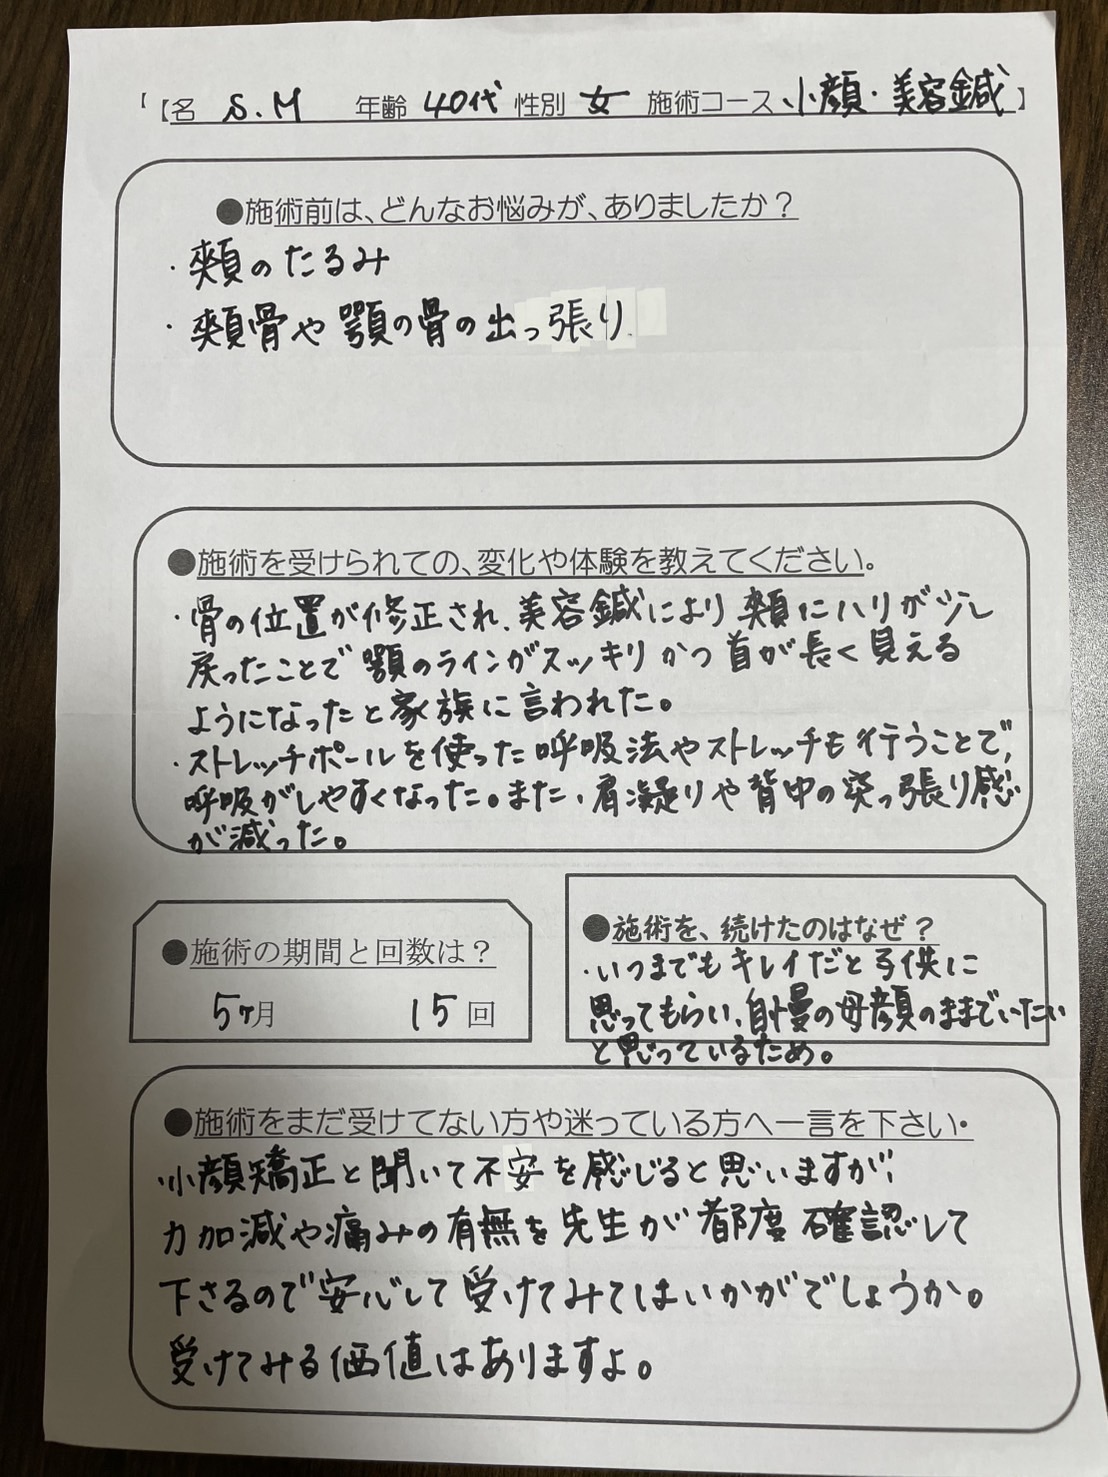 【名 S.M 年齢 40代 性別 女 施術コース 小顔・美容鍼】
●施術前は、どんなお悩みが、ありましたか？
・頬のたるみ
・頬骨や顎の骨の出っ張り
●施術を受けられての、変化や体験を教えてください。
・骨の位置が修正され、美容鍼により頬にハリが少し
戻ったことで顎のラインがスッキリかつ首が長く見える
ようになったと家族に言われた。
・ストレッチポールを使った呼吸法やストレッチも行うことで、
呼吸がしやすくなった。また、肩凝りや背中の突っ張り感
が減った。
●施術の期間と回数は？
5ヶ月 15回
●施術を、続けたのはなぜ？
・いつまでもキレイだと子供に
思ってもらい、自慢の母顔のままでいたい
と思っているため。
●施術をまだ受けてない方や迷っている方へ一言を下さい・
・小顔矯正と聞いて不安を感じると思いますが、
力加減や痛みの有無を先生が都度確認して
下さるので安心して受けてみてはいかがでしょうか。
受けてみる価値はありますよ。